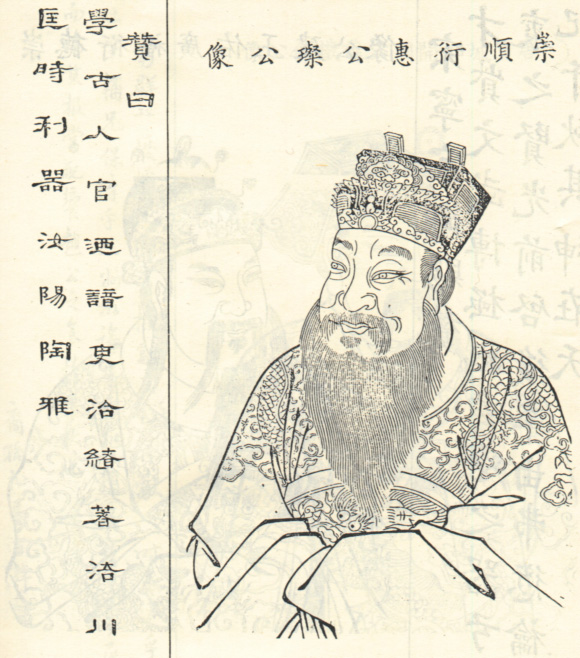 崇順衍惠公璨公像
贊曰
學古入官迺諳吏治緒著浯川
匡時利器汝陽陶雅